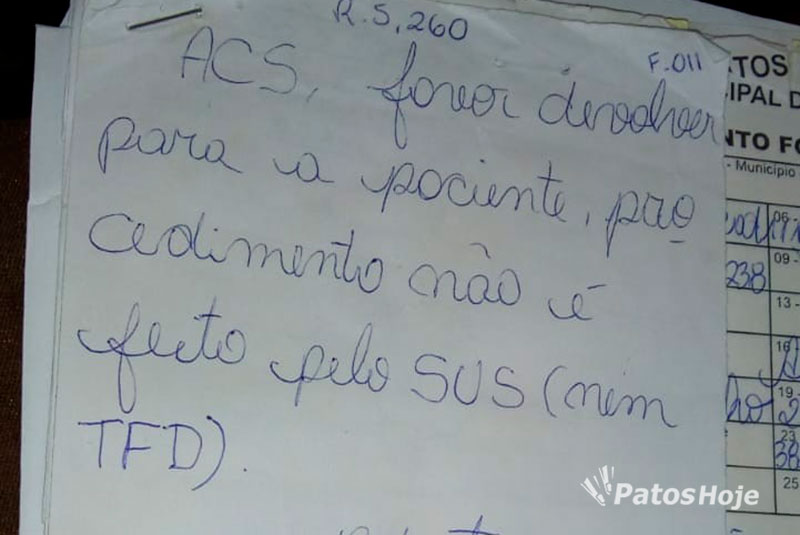 R.S, 260
F.011
ACS, favor devolver
para a paciente, pro
cedimento não é
feito pelo SUS (nem
TFD).
TOS
IPAL D
NTO FO
- Município
06 -
09 -
238
13 -
16
19
23
38
25
PatosHoje